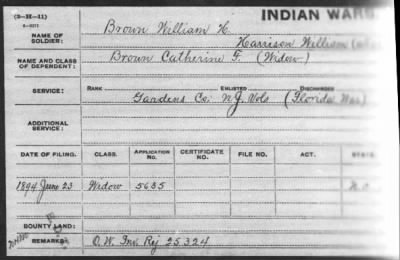 (3-H-11)
6-2071
INDIAN WARS
NAME OF SOLDIER:
Brown William H.
Harrison William
NAME AND CLASS OF DEPENDENT:
Brown Catherine F. (Widow)
SERVICE:
RANK ENLISTED DISCHARGED
Co. N.J. Vols (Florida War)
ADDITIONAL SERVICE:
DATE OF FILING. CLASS. APPLICATION No. CERTIFICATE No. FILE NO. ACT.
1894 June 23 Widow 5635
BOUNTY LAND:
REMARKS: O.W. Inv. Rej 25,324